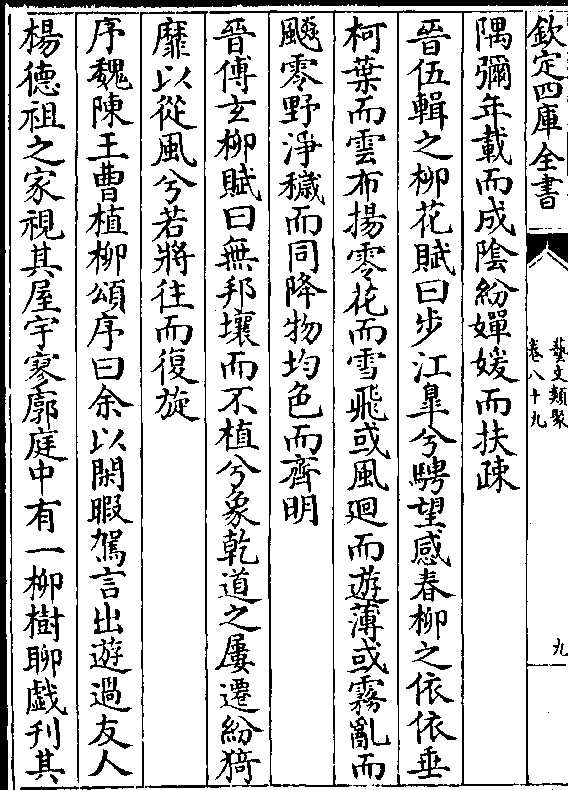 欽定四庫全書
藝文類聚
卷八十九
九
隅彌年載而成陰紛嬋媛而扶疎
晉伍輯之柳花賦曰步江臯兮騁望感春柳之依依垂
柯葉而雲布揚零花而雪飛或風迴而遊薄或霧亂而
飈零野淨穢而同降物均色而齊明
晉傅玄柳賦曰無邦壤而不植兮象乾道之屢遷紛猗
靡以從風兮若將往而復旋
序魏陳王曹植柳頌序曰余以閑暇駕言出遊過友人
楊德祖之家視其屋宇寥廓庭中有一柳樹聊戲刋其